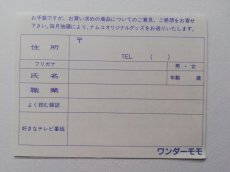 お手数ですが、お買い求めの商品についてのご意見、ご感想をお寄せ
下さい。毎月抽選により、ナムコオリジナルグッズをお送りいたします。
住所 〒
TEL ( )
フリガナ 男・女
氏名 年齢 歳
職業
よく読む雑誌
好きなテレビ番組
ワンダーモモ